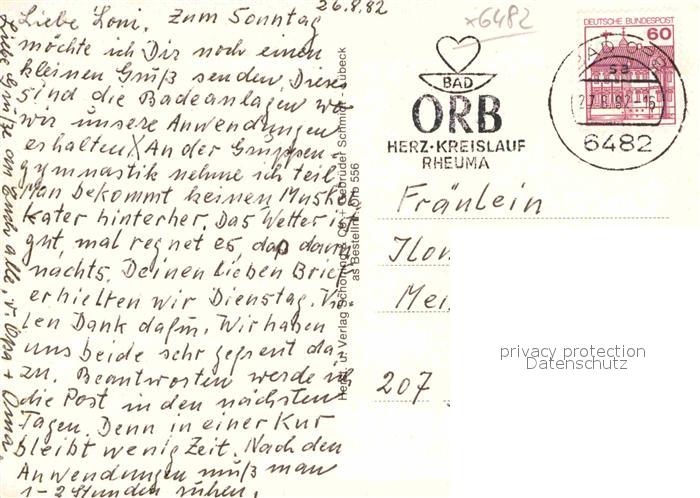 26.8.82
Liebe Loni. Zum Sonntag
möchte ich Dir noch einen
kleinen Gruß senden. Dieses
sind die Badeanlagen wo
wir unsere Anwendungen
erhalten. An der Gruppen-
gymnastik nehme ich teil.
Man bekommt keinen Muskel
Kater hinterher. Das Wetter ist
gut, mal regnet es, das dann
nachts. Deinen lieben Brief
erhielten wir Dienstag. Vie-
len Dank dafür. Wir haben
uns beide sehr gefreut da-
zu. Beantworten werde ich
die Post in den nächsten
Tagen. Denn in einer Kur
bleibt wenig Zeit. Nach den
Anwendungen muß man
1-2 Stunden ruhen.
Liebe Grüße an Euch alle, v. Opa + Oma
Gebrüder Schmidt, Lübeck
Orb 556
x6482
BAD
ORB
HERZ·KREISLAUF
RHEUMA
DEUTSCHE BUNDESPOST
60
BAD ORB
sa
27.8.82-16
6482
Fräulein
Ilon
Mei
207
privacy protection
Datenschutz